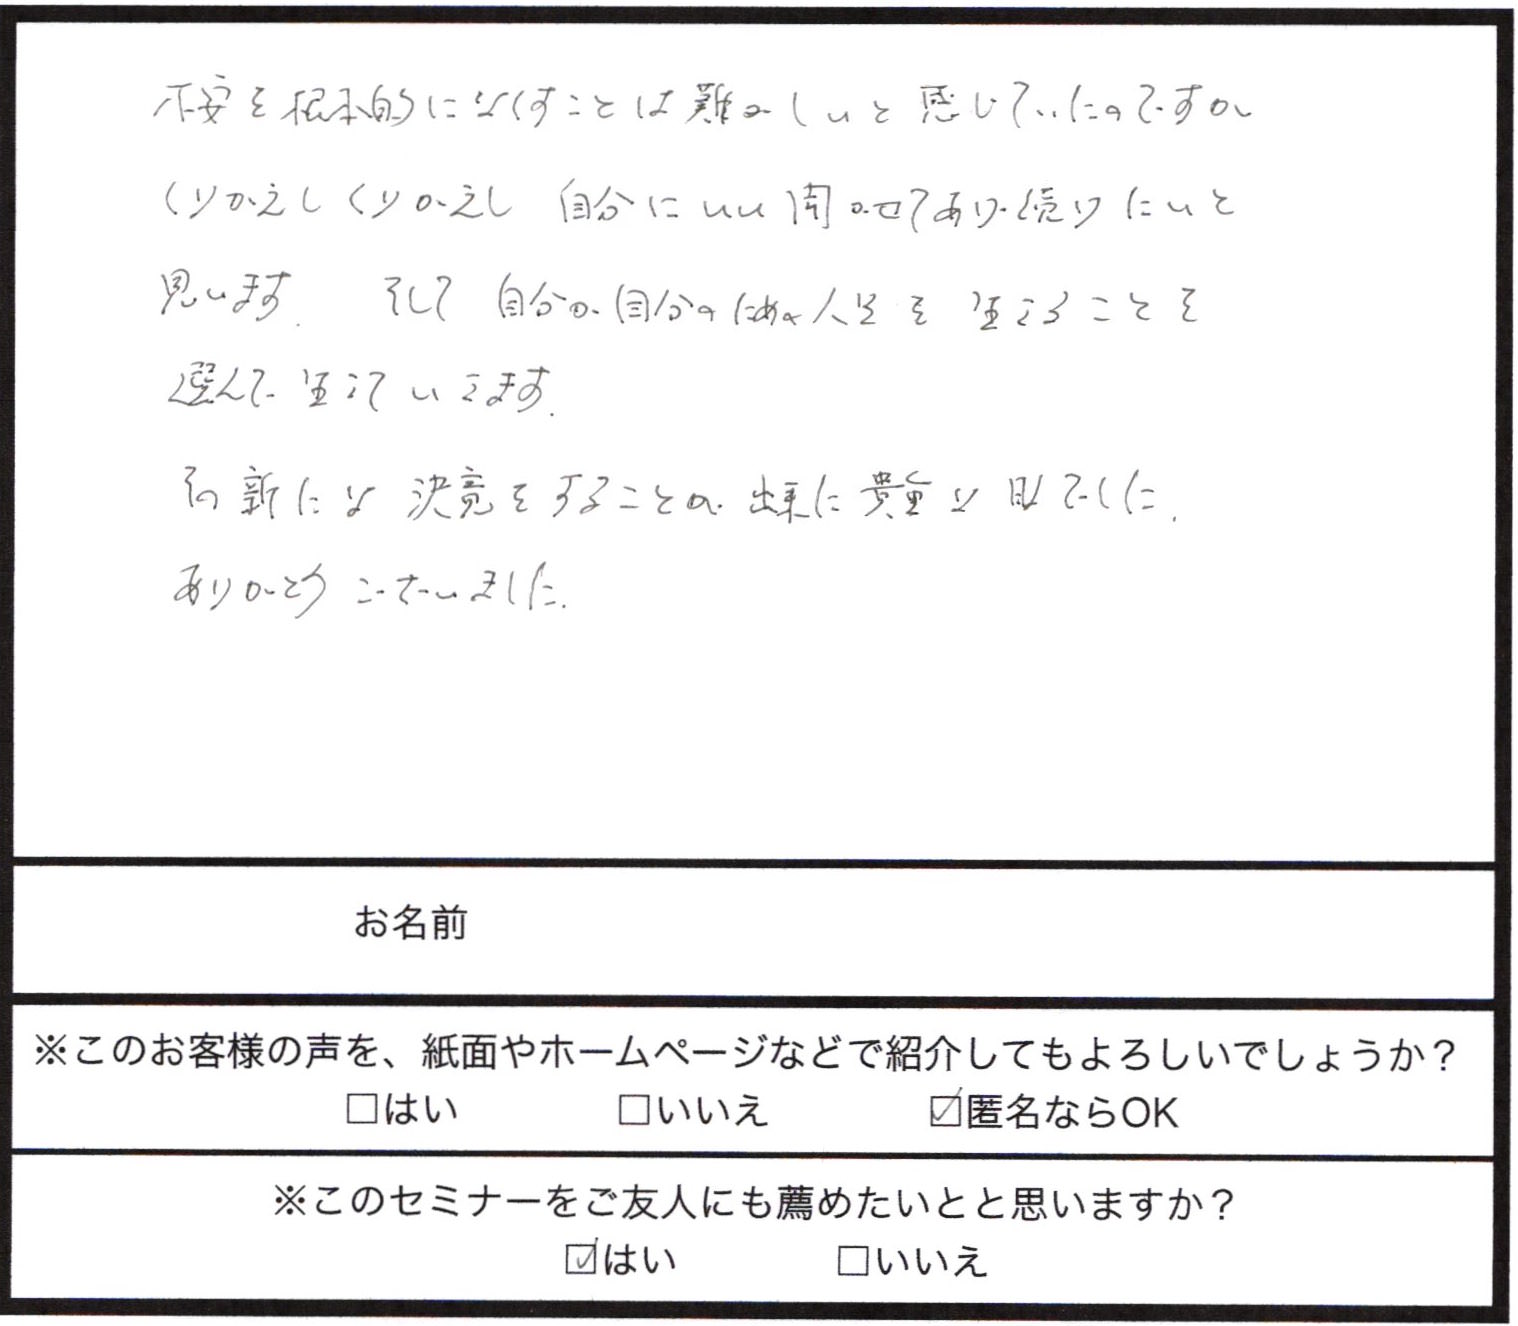 不安を根本的になくすことは難かしいと感じていたのですが
くりかえしくりかえし 自分にいい聞かせてあり続けたいと
思います。 そして 自分が自分のための人生を 生きることを
選んで 生きていきます。
その新たな 決意をすることが 出来た貴重な 時でした。
ありがとうございました。
お名前
※このお客様の声を、紙面やホームページなどで紹介してもよろしいでしょうか？
□はい □いいえ ☑匿名ならOK
※このセミナーをご友人にも薦めたいとと思いますか？
☑はい □いいえ